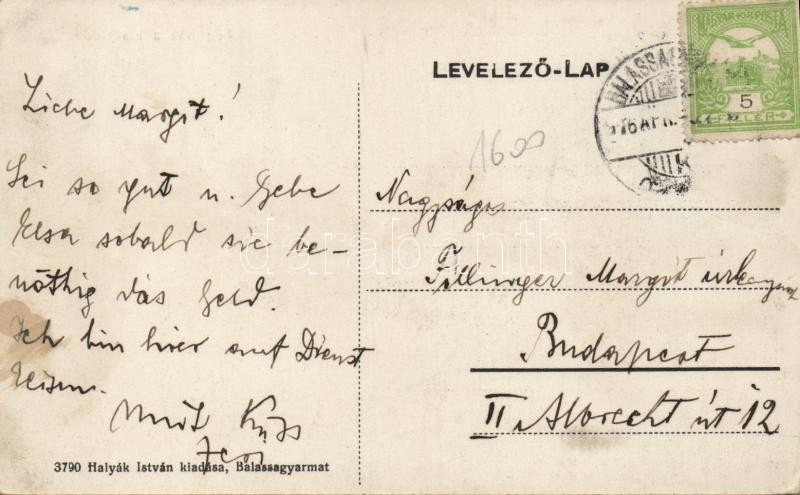 Liebe Margit!
Sei so gut u. Gebe
Elsa sobald sie be-
nöthig das Geld.
Ich bin hier auf Dienst
Reisen.
Küss
3790 Halyák István kiadása, Balassagyarmat
LEVELEZŐ-LAP
BALASSAGYARMAT
5
FILLÉR
1600
Nagyságos
Fillinger Margit úrk
Budapest
II Albrecht út 12
darabanth